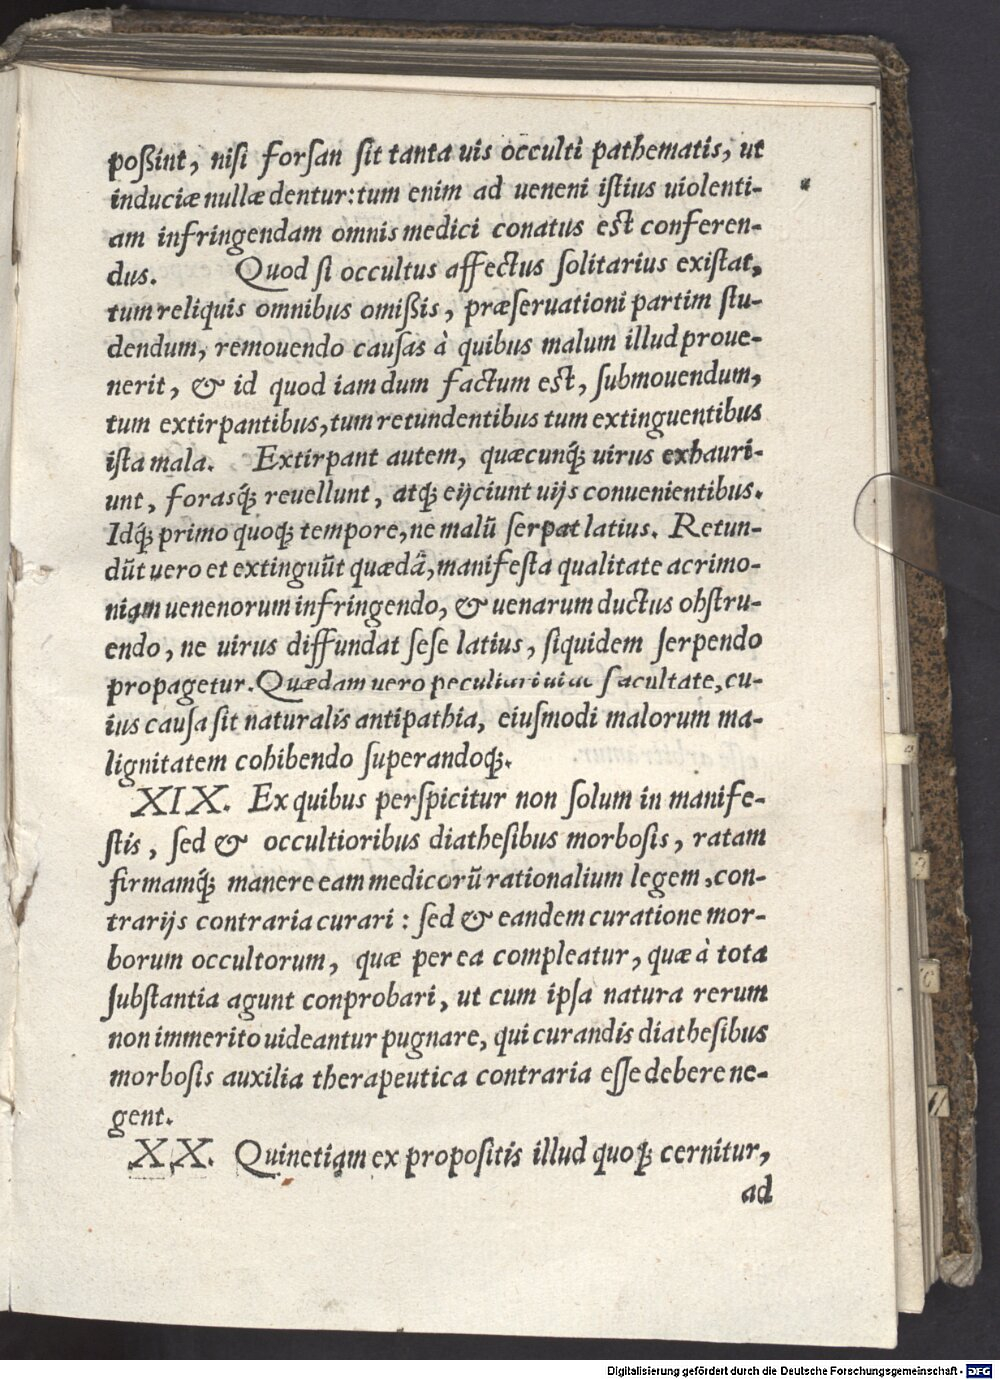 poßint, nisi forsan sit tanta uis occulti pathematis, ut
induciæ nullæ dentur: tum enim ad ueneni istius uiolenti-
am infringendam omnis medici conatus est conferen-
dus. Quod si occultus affectus solitarius existat,
tum reliquis omnibus omißis, præseruationi partim stu-
dendum, remouendo causas à quibus malum illud proue-
nerit, & id quod iam dum factum est, submouendum,
tum extirpantibus, tum retundentibus tum extinguentibus
ista mala. Extirpant autem, quæcunq́; uirus exhauri-
unt, forasq́; reuellunt, atq́; eijciunt uijs conuenientibus.
Idq́; primo quoq́; tempore, ne malũ serpat latius. Retun-
dũt uero et extinguũt quædã, manifesta qualitate acrimo-
niam uenenorum infringendo, & uenarum ductus obstru-
endo, ne uirus diffundat sese latius, siquidem serpendo
propagetur. Quædam uero peculiari facultate, cu-
ius causa sit naturalis antipathia, eiusmodi malorum ma-
lignitatem cohibendo superandoq́;.
XIX. Ex quibus perspicitur non solum in manife-
stis, sed & occultioribus diathesibus morbosis, ratam
firmamq́; manere eam medicorũ rationalium legem, con-
trarijs contraria curari: sed & eandem curatione mor-
borum occultorum, quæ per ea compleatur, quæ à tota
substantia agunt conprobari, ut cum ipsa natura rerum
non immerito uideantur pugnare, qui curandis diathesibus
morbosis auxilia therapeutica contraria esse debere ne-
gent.
XX. Quinetiam ex propositis illud quoq́; cernitur,
ad
Digitalisierung gefördert durch die Deutsche Forschungsgemeinschaft - DFG